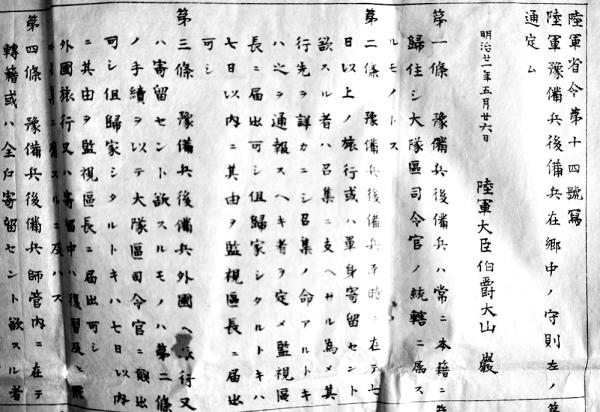 陸軍省令第十四號寫
陸軍豫備兵後備兵在鄉中ノ守則左ノ
通定ム
明治廿一年五月廿六日
陸軍大臣伯爵大山巖
第一條 豫備兵後備兵ハ常ニ本籍ニ
歸住シ大隊區司令官ノ統轄ニ属ス
ルモノトス
第二條 豫備兵後備兵平時ニ在テ七
日以上ノ旅行或ハ單身寄留セント
欲スル者ハ召集ニ支ヘサル為メ其
行先ヲ詳カニシ召集ノ命アルトキ
ハ之ヲ通報スヘキ者ヲ定メ監視區
長ニ届出可シ但歸家シタルトキハ
七日以内ニ其由ヲ監視區長ニ届出
可シ
第三條 豫備兵後備兵外國ヘ旅行又
ハ寄留セント欲スルモノハ第二條
ノ手續ヲ以テ大隊區司令官ニ願出
可シ但歸家シタルトキハ七日以内
ニ其由ヲ監視區長ニ届出可シ
外國旅行又ハ寄留中ハ復習及ヒ點
ルニ及ハス
第四條 豫備兵後備兵師管内ニ在テ
轉籍或ハ全戸寄留セント欲スル者